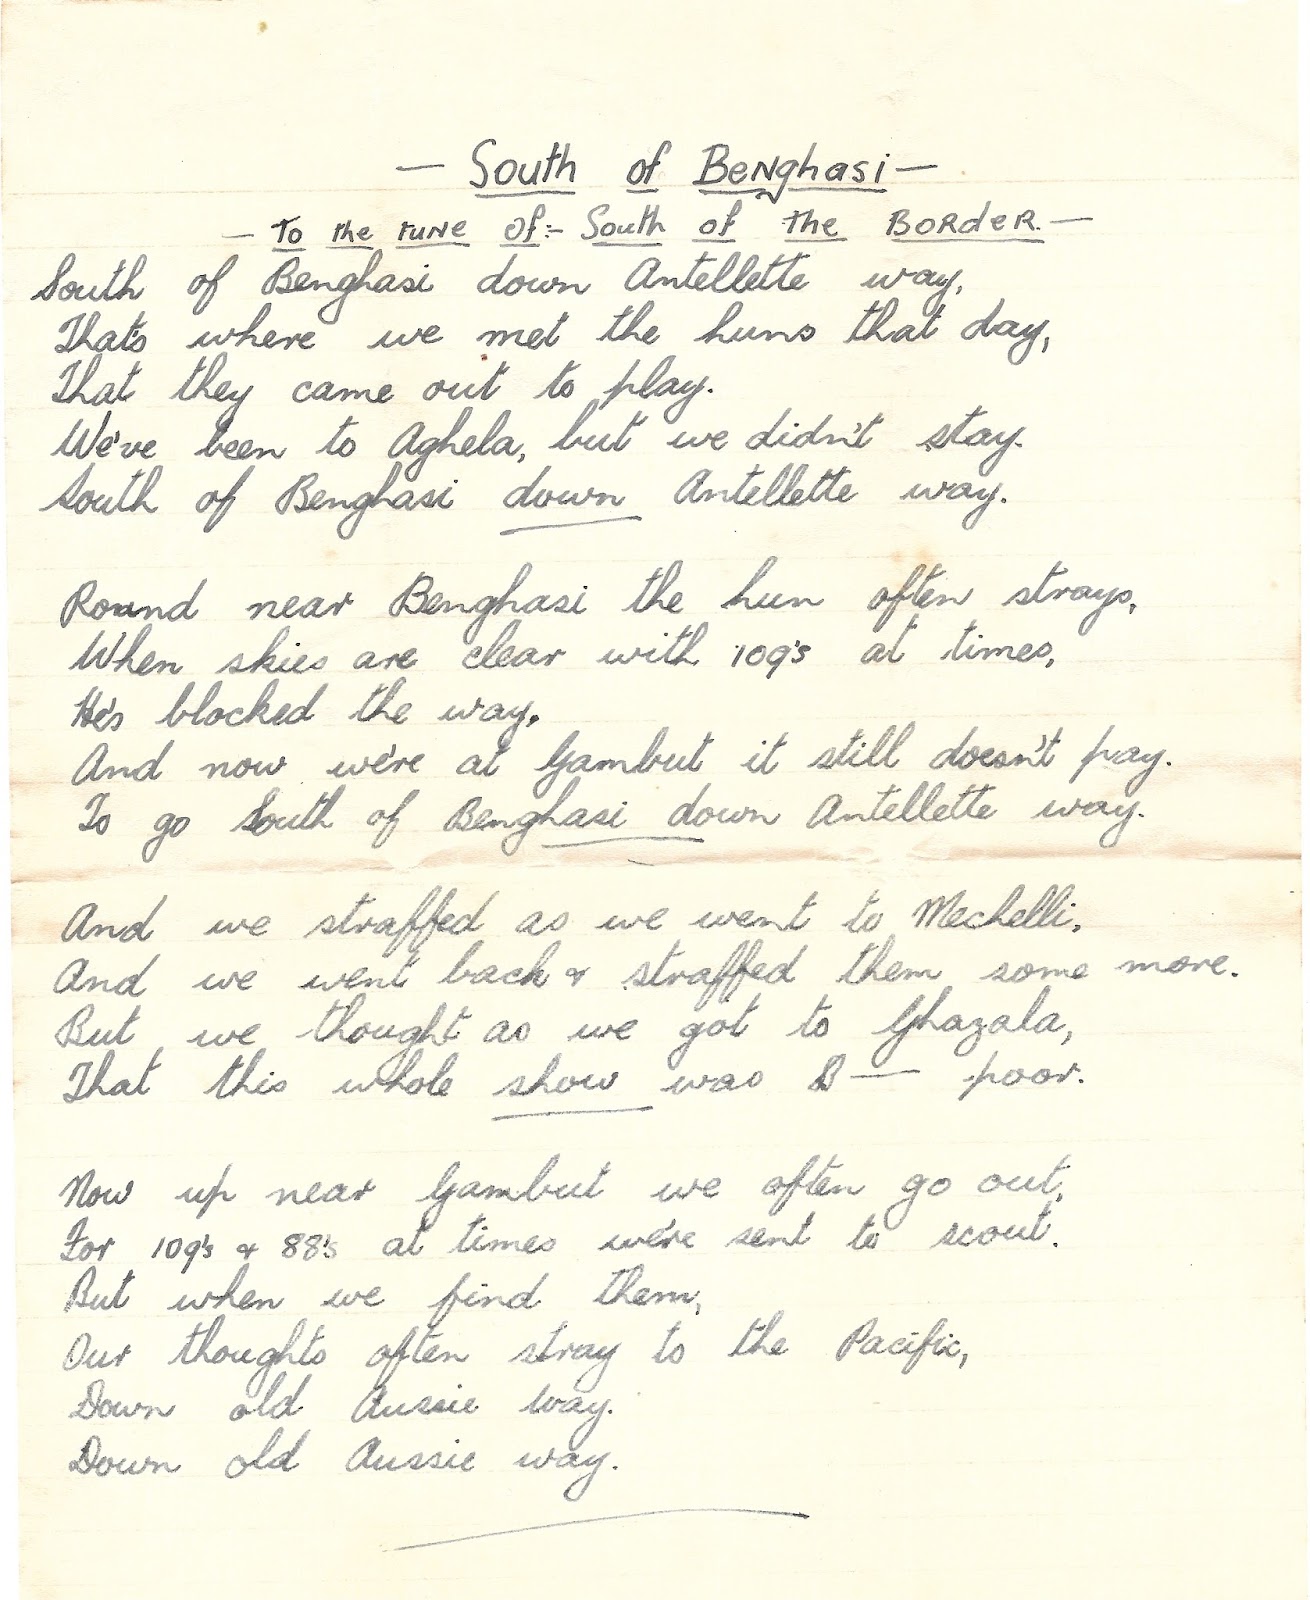 — South of Benghasi —
— To the tune of:- South of the Border. —
South of Benghasi down Antellette way,
That's where we met the huns that day,
That they came out to play.
We've been to Aghela, but we didn't stay.
South of Benghasi down Antellette way.
Round near Benghasi the hun often strays,
When skies are clear with 109's at times,
He's blocked the way.
And now we're at Gambut it still doesn't pay.
To go South of Benghasi down Antellette way.
And we straffed as we went to Mechelli,
And we went back & straffed them some more.
But we thought as we got to Ghazala,
That this whole show was B— poor.
Now up near Gambut we often go out,
For 109's & 88's at times we're sent to scout.
But when we find them,
Our thoughts often stray to the Pacific,
Down old Aussie way.
Down old Aussie way.